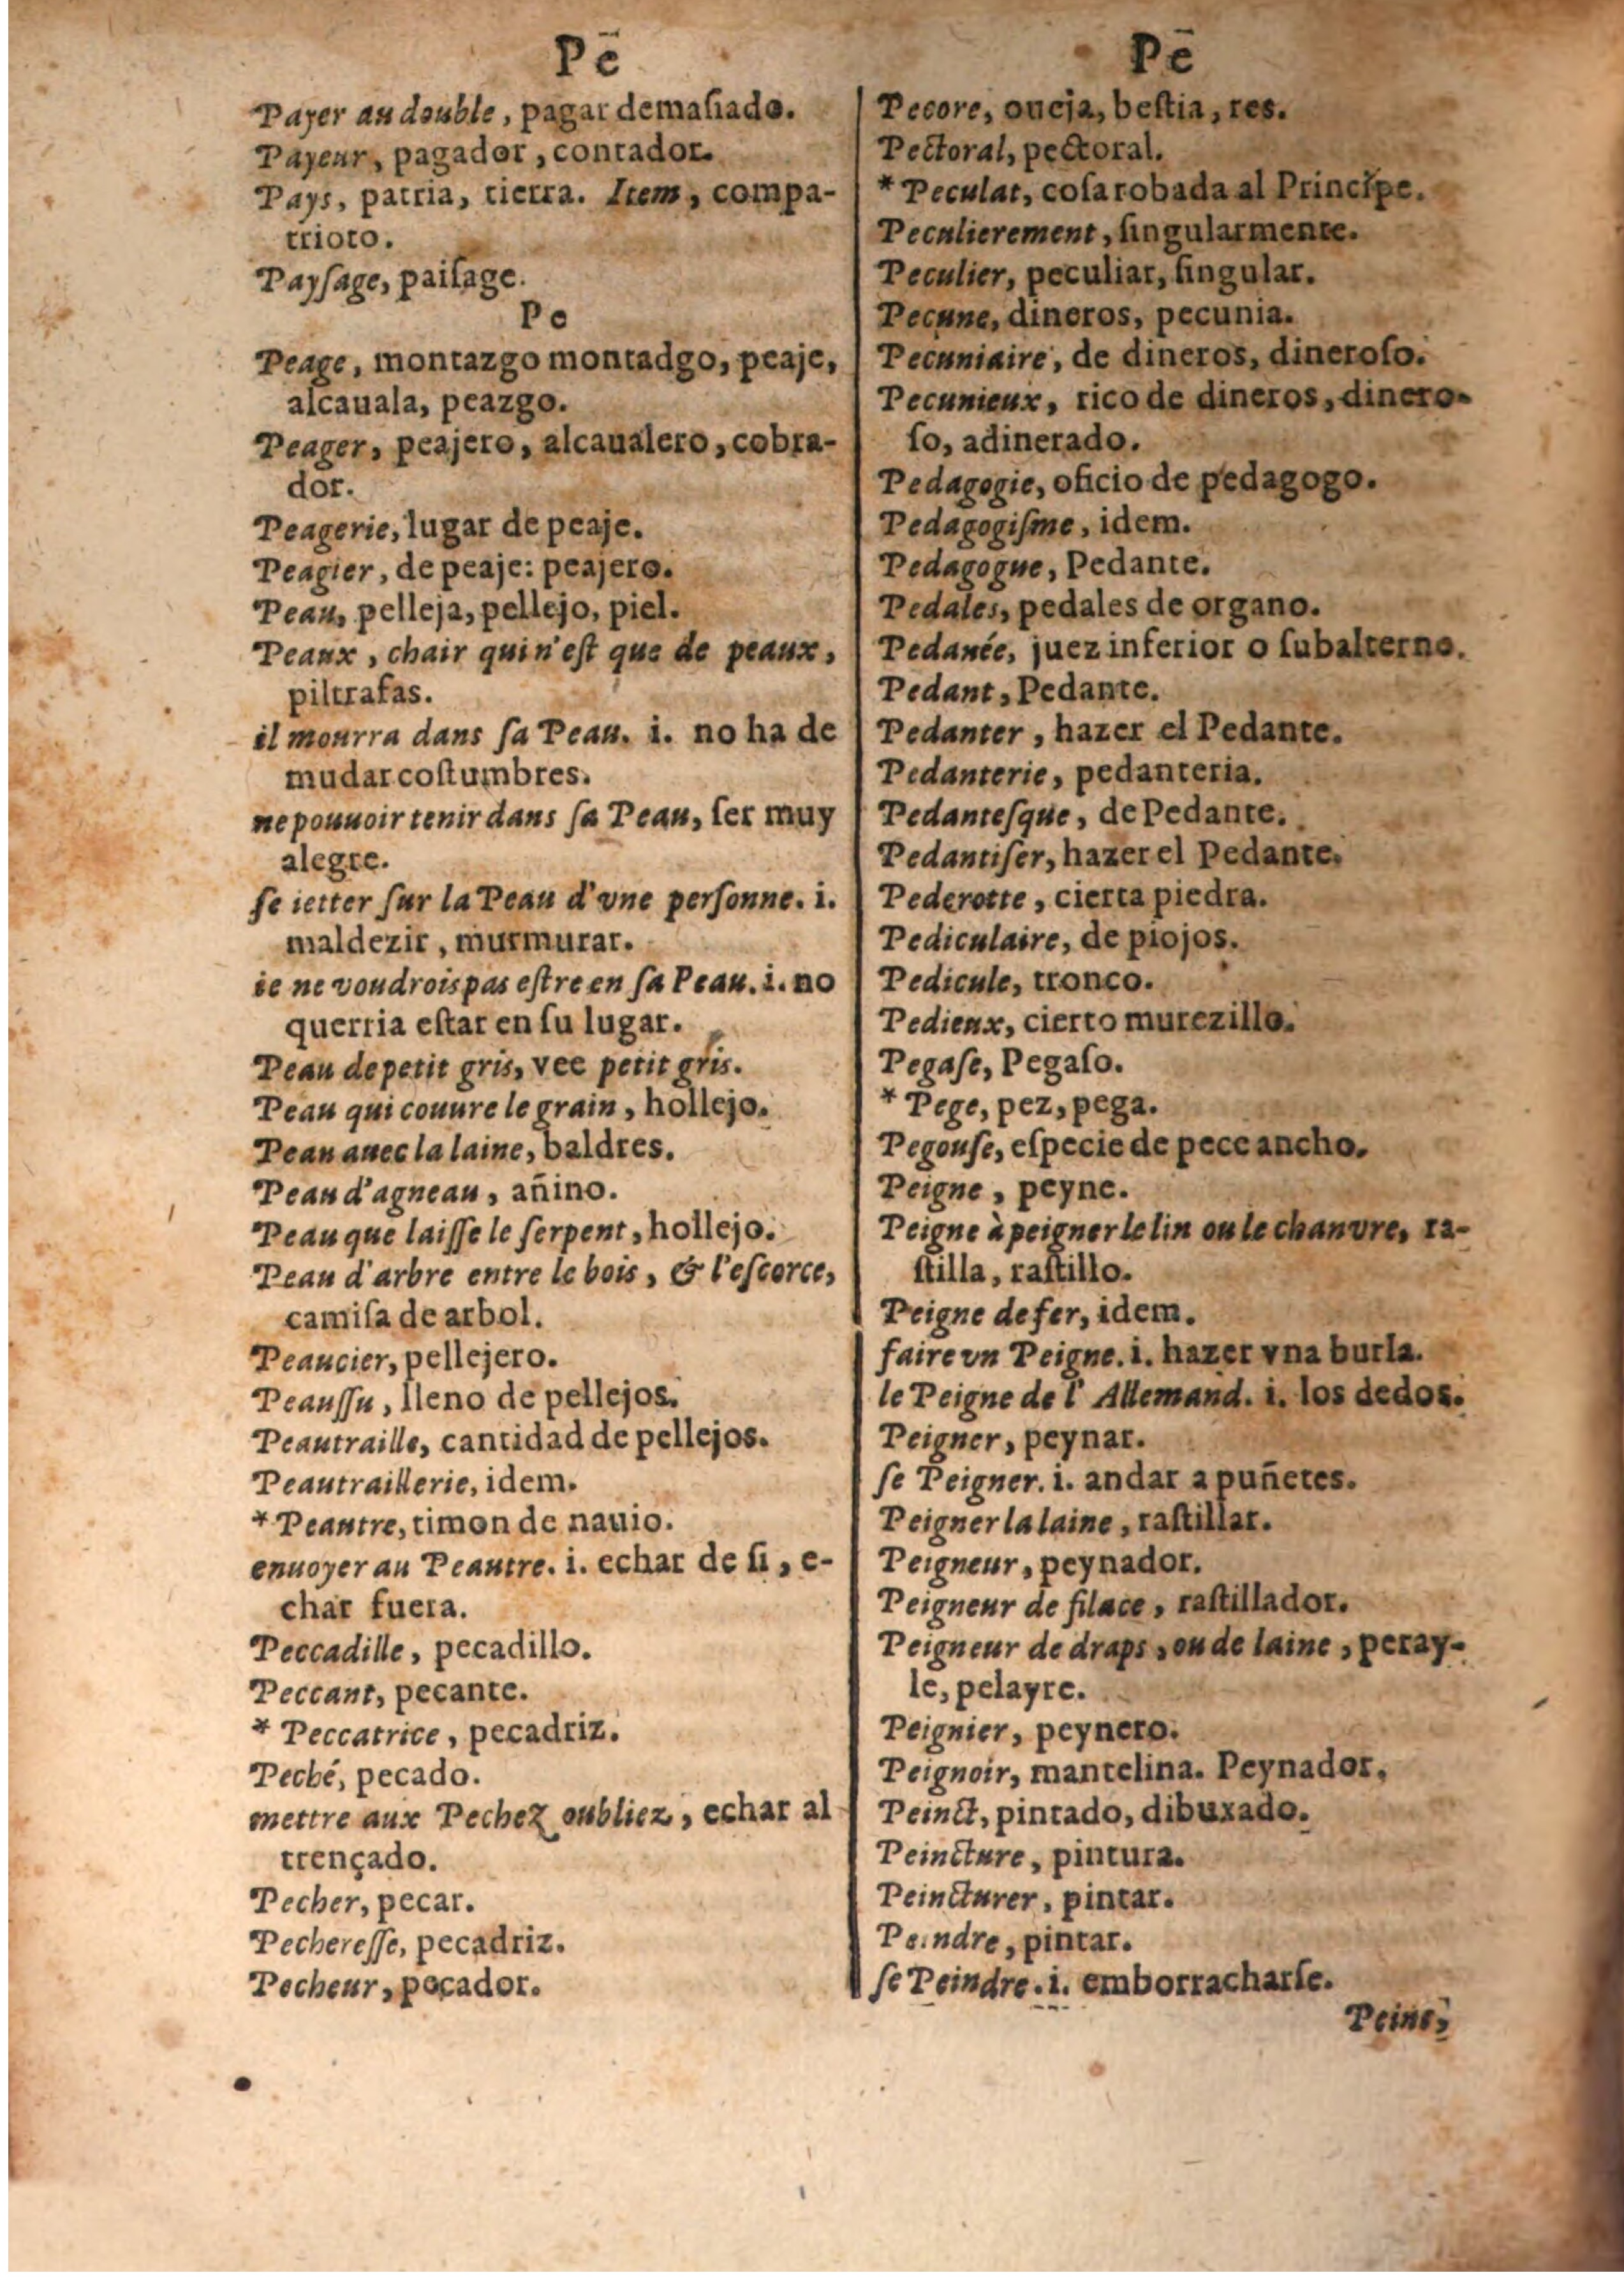 Pē
Payer au double, pagar demaſiado.
Payeur, pagador, contador.
Pays, patria, tierra. Item, compa-
trioto.
Payſage, paiſage.
Pe
Peage, montazgo montadgo, peaje,
alcauala, peazgo.
Peager, peajero, alcaualero, cobra-
dor.
Peagerie, lugar de peaje.
Peagier, de peaje: peajero.
Peau, pelleja, pellejo, piel.
Peaux, chair qui n'eſt que de peaux,
piltrafas.
il mourra dans ſa Peau. i. no ha de
mudar coſtumbres.
ne pouuoir tenir dans ſa Peau, ſer muy
alegre.
ſe ietter ſur la Peau d'vne perſonne. i.
maldezir, murmurar.
ie ne voudrois pas eſtre en ſa Peau. i. no
querria eſtar en ſu lugar.
Peau de petit gris, vee petit gris.
Peau qui couure le grain, hollejo.
Peau auec la laine, baldres.
Peau d'agneau, añino.
Peau que laiſſe le ſerpent, hollejo.
Peau d'arbre entre le bois, & l'eſcorce,
camiſa de arbol.
Peaucier, pellejero.
Peauſſu, lleno de pellejos.
Peautraille, cantidad de pellejos.
Peautraillerie, idem.
* Peautre, timon de nauio.
enuoyer au Peautre. i. echar de ſi, e-
char fuera.
Peccadille, pecadillo.
Peccant, pecante.
* Peccatrice, pecadriz.
Peché, pecado.
mettre aux Pechez oubliez, echar al
trençado.
Pecher, pecar.
Pechereſſe, pecadriz.
Pecheur, pecador.
Pē
Pecore, oueja, beſtia, res.
Pectoral, pectoral.
* Peculat, coſa robada al Principe.
Peculierement, ſingularmente.
Peculier, peculiar, ſingular.
Pecune, dineros, pecunia.
Pecuniaire, de dineros, dineroſo.
Pecunieux, rico de dineros, dinero-
ſo, adinerado.
Pedagogie, oficio de pedagogo.
Pedagogiſme, idem.
Pedagogue, Pedante.
Pedales, pedales de organo.
Pedanée, juez inferior o ſubalterno.
Pedant, Pedante.
Pedanter, hazer el Pedante.
Pedanterie, pedanteria.
Pedanteſque, de Pedante.
Pedantiſer, hazer el Pedante.
Pederotte, cierta piedra.
Pediculaire, de piojos.
Pedicule, tronco.
Pedieux, cierto murezillo.
Pegaſe, Pegaſo.
* Pege, pez, pega.
Pegouſe, eſpecie de pece ancho.
Peigne, peyne.
Peigne à peigner le lin ou le chanvre, ra-
ſtilla, raſtillo.
Peigne de fer, idem.
faire vn Peigne. i. hazer vna burla.
le Peigne de l'Allemand. i. los dedos.
Peigner, peynar.
ſe Peigner. i. andar a puñetes.
Peigner la laine, raſtillar.
Peigneur, peynador.
Peigneur de filace, raſtillador.
Peigneur de draps, ou de laine, peray-
le, pelayre.
Peignier, peynero.
Peignoir, mantelina. Peynador.
Peinct, pintado, dibuxado.
Peincture, pintura.
Peincturer, pintar.
Peindre, pintar.
ſe Peindre. i. emborracharſe.
Peine,